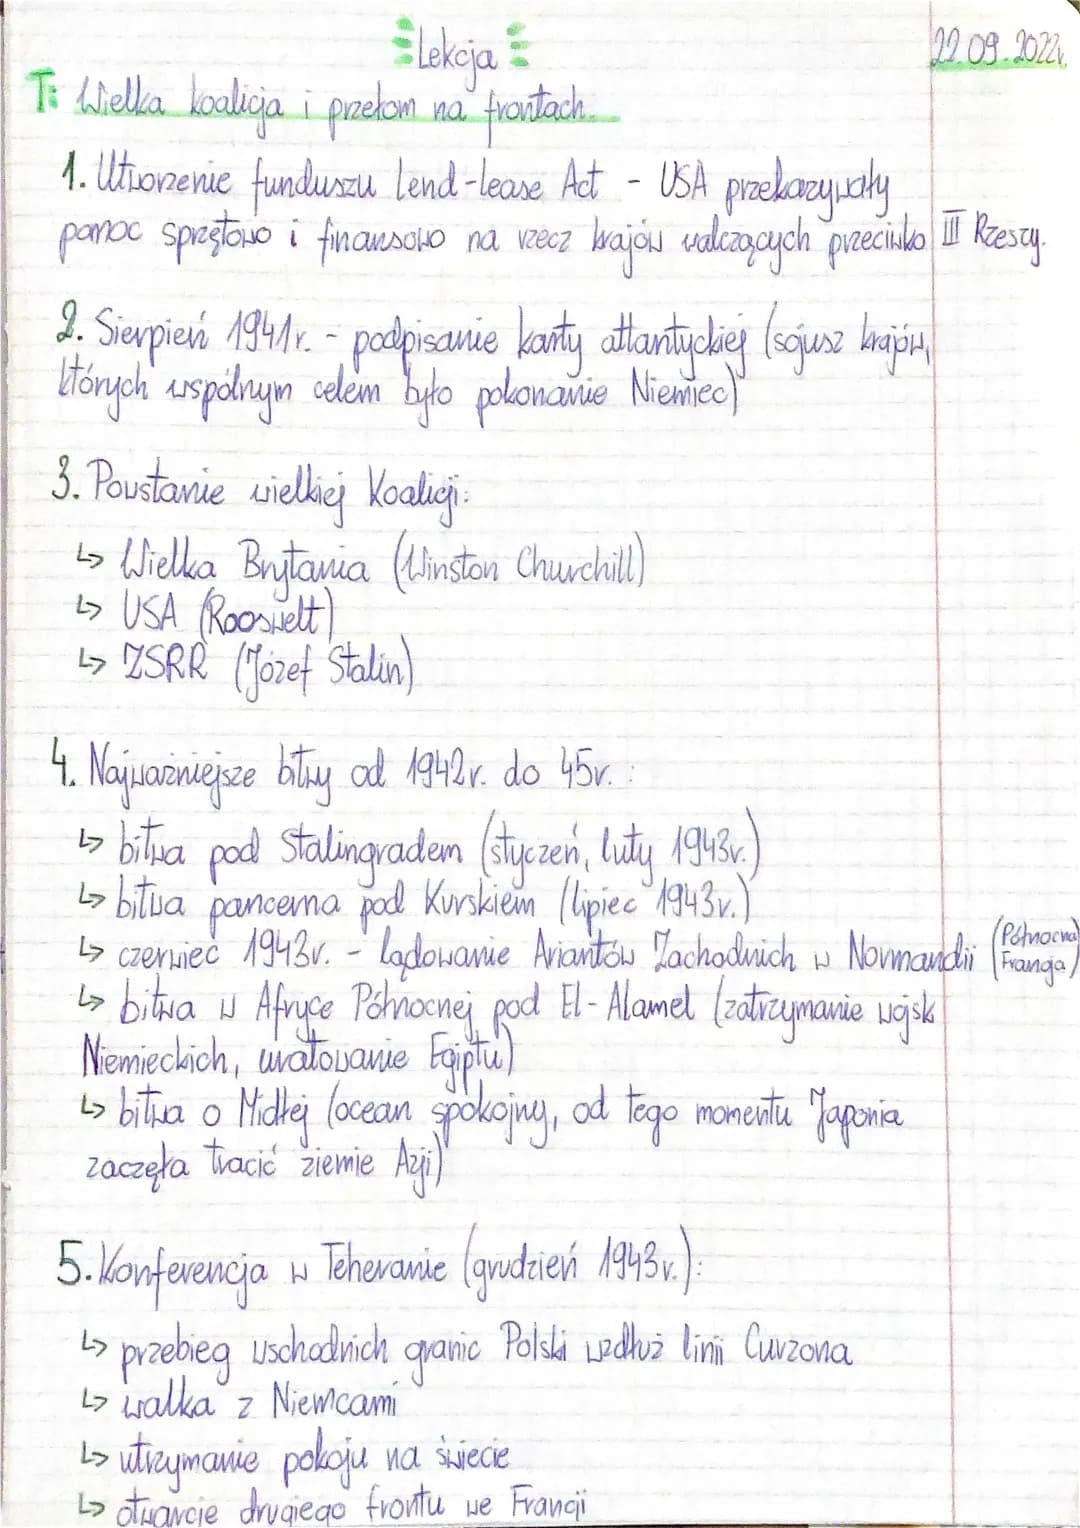 Lekcja
22.09.2022r.
T: Wielka koalicja i przełom na frontach.
1. Utworzenie funduszu Lend-lease Act - USA przekazywały
pomoc sprzętowo i finansowo na rzecz krajów walczących przeciwko III Rzeszy.
2. Sierpień 1941r. - podpisanie karty atlantyckiej (sojusz krajów,
których wspólnym celem było pokonanie Niemiec)
3. Powstanie wielkiej Koalicji:
↳ Wielka Brytania (Winston Churchill)
↳ USA (Rooswelt)
↳ ZSRR (Józef Stalin)
4. Najważniejsze bitwy od 1942r. do 45r. :
↳ bitwa pod Stalingradem (styczeń, luty 1943r.)
↳ bitwa pancerna pod Kurskiem (lipiec 1943r.)
↳ czerwiec 1943r. - lądowanie Ariantów Zachodnich w Normandii (Północna Francja)
↳ bitwa w Afryce Północnej pod El-Alamel (zatrzymanie wojsk
Niemieckich, uratowanie Egiptu)
↳ bitwa o Midłej (ocean spokojny, od tego momentu Japonia
zaczęła tracić ziemie Azji)
5. Konferencja w Teheranie (grudzień 1943r.):
↳ przebieg wschodnich granic Polski wzdłuż linii Curzona
↳ walka z Niemcami
↳ utrzymanie pokoju na świecie
↳ otwarcie drugiego frontu we Francji